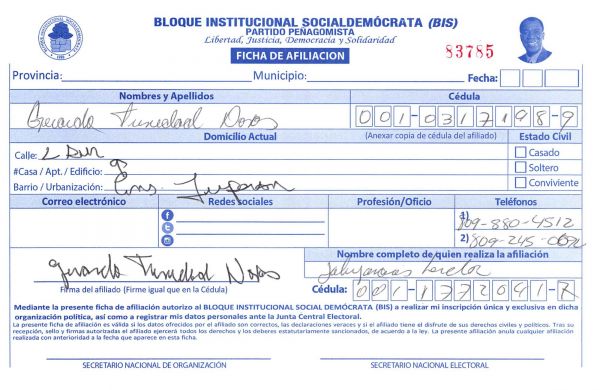 BLOQUE INSTITUCIONAL SOCIALDEMÓCRATA (BIS)
PARTIDO PEÑAGOMISTA
Libertad, Justicia, Democracia y Solidaridad
FICHA DE AFILIACION
83785
Provincia: Municipio: Fecha:
Nombres y Apellidos Cédula
Gerardo 001-0317198-9
Domicilio Actual (Anexar copia de cédula del afiliado) Estado Civil
Calle: Casado
#Casa / Apt. / Edificio: 9 Soltero
Barrio / Urbanización: Conviviente
Correo electrónico Redes sociales Profesión/Oficio Teléfonos
1) 809-880-4512
2) 809-245-
Nombre completo de quien realiza la afiliación
Gerardo
Firma del afiliado (Firme igual que en la Cédula) Cédula: 001-1772041-
Mediante la presente ficha de afiliación autorizo al BLOQUE INSTITUCIONAL SOCIAL DEMÓCRATA (BIS) a realizar mi inscripción única y exclusiva en dicha
organización política, así como a registrar mis datos personales ante la Junta Central Electoral.
La presente ficha de afiliación es válida si los datos ofrecidos por el afiliado son correctos, las declaraciones veraces y si el afiliado tiene el disfrute de sus derechos civiles y políticos. Tras su
recepción, sello y firmas autorizadas el afiliado ejercerá todos los derechos y los deberes estatutariamente sancionados, de acuerdo a la ley. La presente afiliación anula cualquier afiliación
realizada con anterioridad a la fecha que aparece en esta ficha.
SECRETARIO NACIONAL DE ORGANIZACIÓN SECRETARIO NACIONAL ELECTORAL